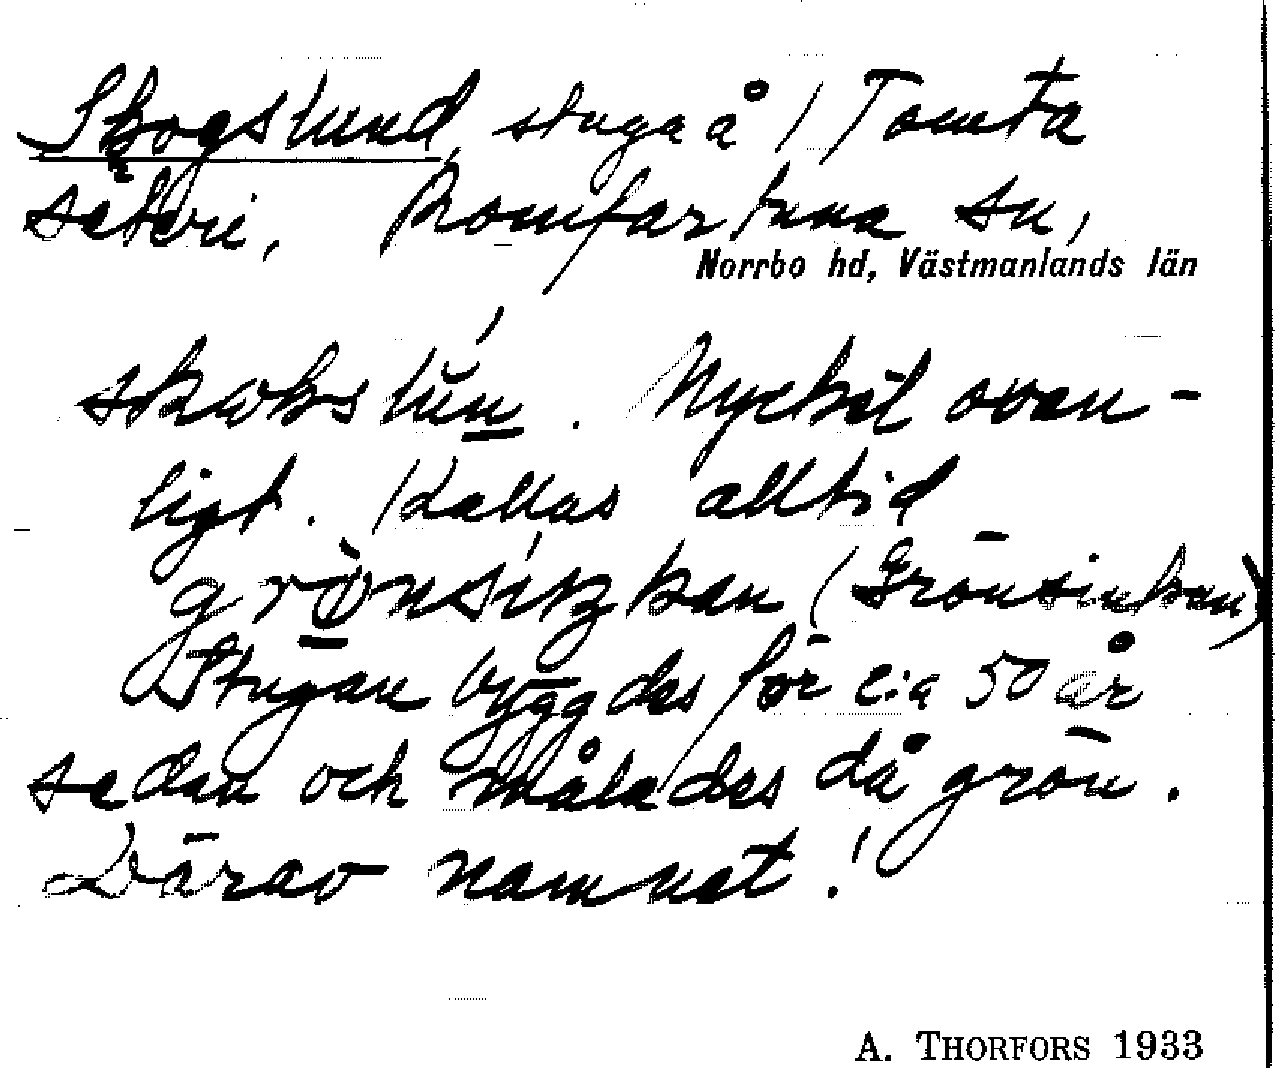 Skogslund, stuga å Tomta
säteri, Romfartuna sn,
Norrbo hd, Västmanlands län
Mycket ovan-
ligt. Kallas alltid
(Grönsinkan)
Stugan byggdes för c:a 50 år
sedan och målades då grön.
Därav namnet!
A. THORFORS 1933